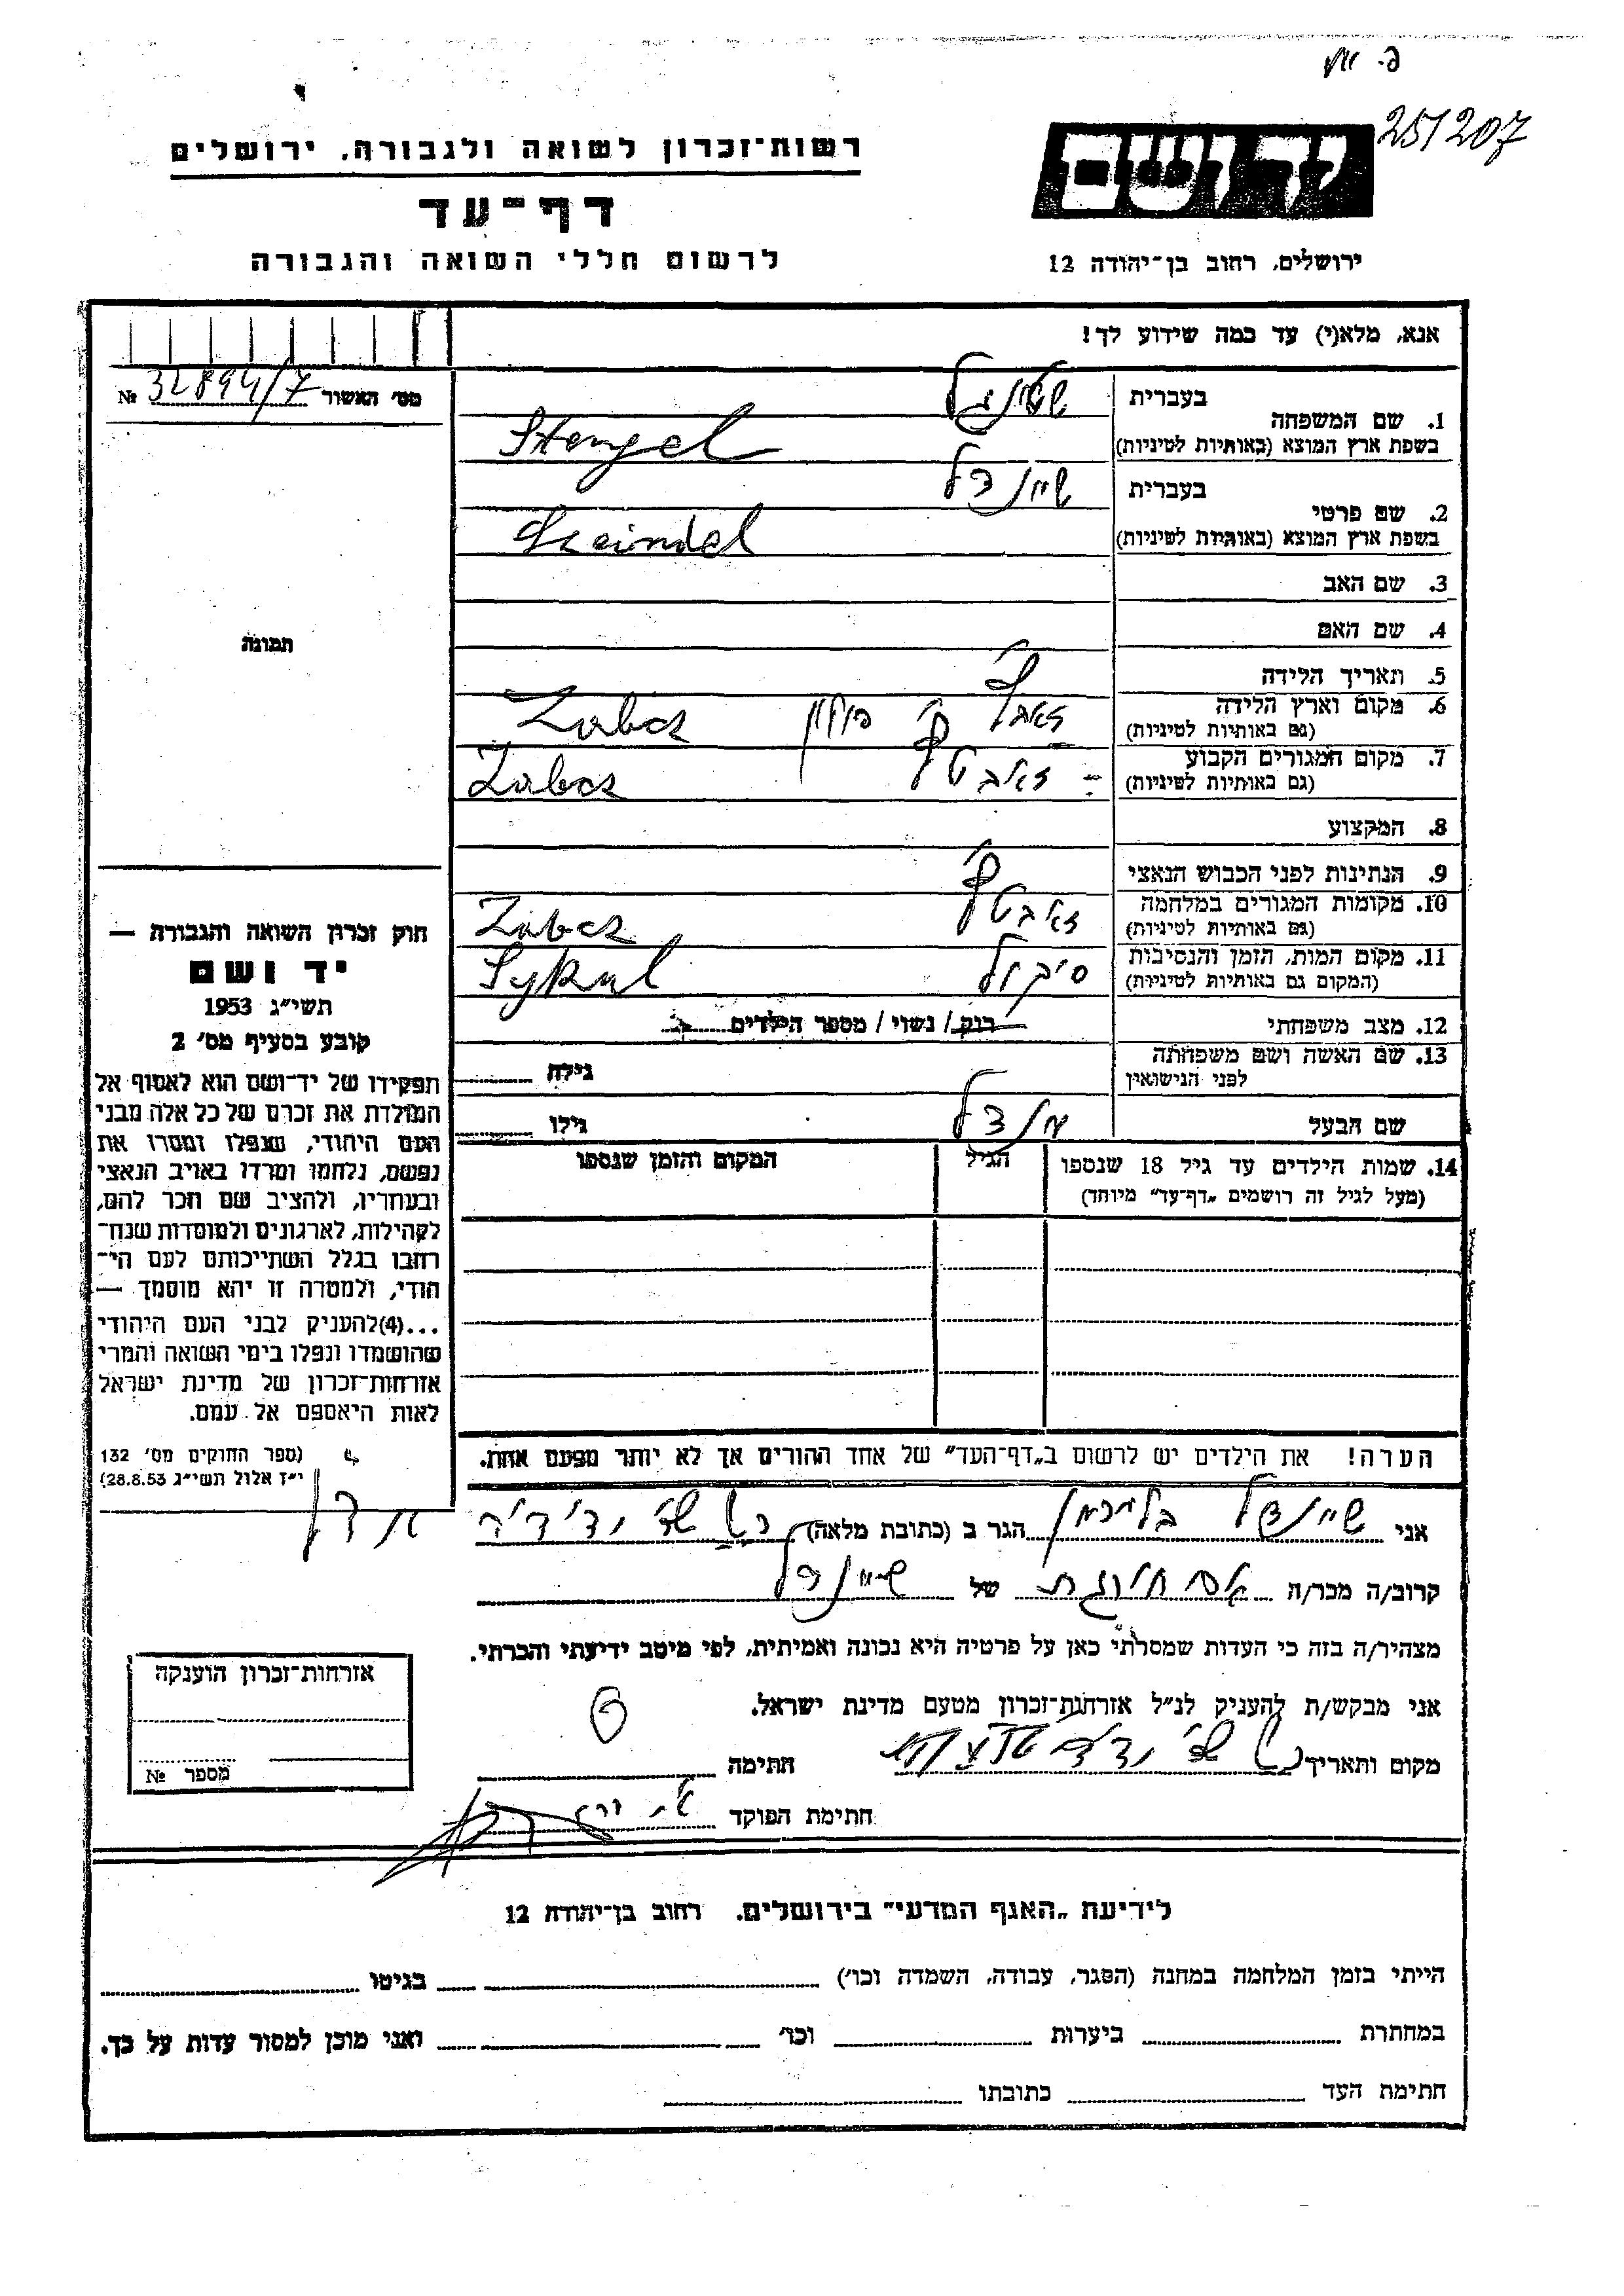 25/207
רשות־זכרון לשואה ולגבורה, ירושלים
יד ושם
דף־עד
לרשום חללי השואה והגבורה
ירושלים, רחוב בן־יהודה 12
אנא, מלא(י) עד כמה שידוע לך!
מס׳ האשור 32894/7 №
1. שם המשפחה
בעברית שטנגל
בשפת ארץ המוצא (באותיות לטיניות) Stengel
2. שם פרטי
בעברית שיינדל
בשפת ארץ המוצא (באותיות לטיניות) Szeindel
3. שם האב
4. שם האם
תמונה
5. תאריך הלידה
6. מקום וארץ הלידה
(גם באותיות לטיניות) פולין Zabcz
7. מקום המגורים הקבוע
(גם באותיות לטיניות) Zabcz
8. המקצוע
9. הנתינות לפני הכבוש הנאצי
10. מקומות המגורים במלחמה
(גם באותיות לטיניות) Zabcz
11. מקום המות, הזמן והנסיבות
(המקום גם באותיות לטיניות) Sykul
12. מצב משפחתי רווק / נשוי / מספר הילדים
13. שם האשה ושם משפחתה
לפני הנישואין גילה
שם הבעל מנדל גילו
14. שמות הילדים עד גיל 18 שנספו הגיל המקום והזמן שנספו
(מעל לגיל זה רושמים „דף־עד״ מיוחד)
חוק זכרון השואה והגבורה —
יד ושם
תשי״ג 1953
קובע בסעיף מס׳ 2
תפקידו של יד־ושם הוא לאסוף אל
המולדת את זכרם של כל אלה מבני
העם היהודי, שנפלו ומסרו את
נפשם, נלחמו ומרדו באויב הנאצי
ובעוזריו, ולהציב שם וזכר להם,
לקהילות, לארגונים ולמוסדות שנח־
רבו בגלל השתייכותם לעם הי־
הודי, ולמטרה זו יהא מוסמך —
...(4)להעניק לבני העם היהודי
שהושמדו ונפלו בימי השואה והמרי
אזרחות־זכרון של מדינת ישראל
לאות היאספם אל עמם.
(ספר החוקים מס׳ 132
י״ז אלול תשי״ג 28.8.53)
הערה! את הילדים יש לרשום ב„דף־העד״ של אחד ההורים אך לא יותר מפעם אחת.
אני שיינדל הגר ב (כתובת מלאה)
קרוב/ה מכר/ה אם חורגת של שיינדל
מצהיר/ה בזה כי העדות שמסרתי כאן על פרטיה היא נכונה ואמיתית, לפי מיטב ידיעתי והכרתי.
אני מבקש/ת להעניק לנ״ל אזרחות־זכרון מטעם מדינת ישראל.
מקום ותאריך חתימה
חתימת הפוקד
אזרחות־זכרון הוענקה
מספר №
לידיעת „האגף המדעי״ בירושלים, רחוב בן־יהודה 12
הייתי בזמן המלחמה במחנה (הסגר, עבודה, השמדה וכו׳) בגיטו
במחתרת ביערות וכו׳ ואני מוכן למסור עדות על כך.
חתימת העד כתובתו